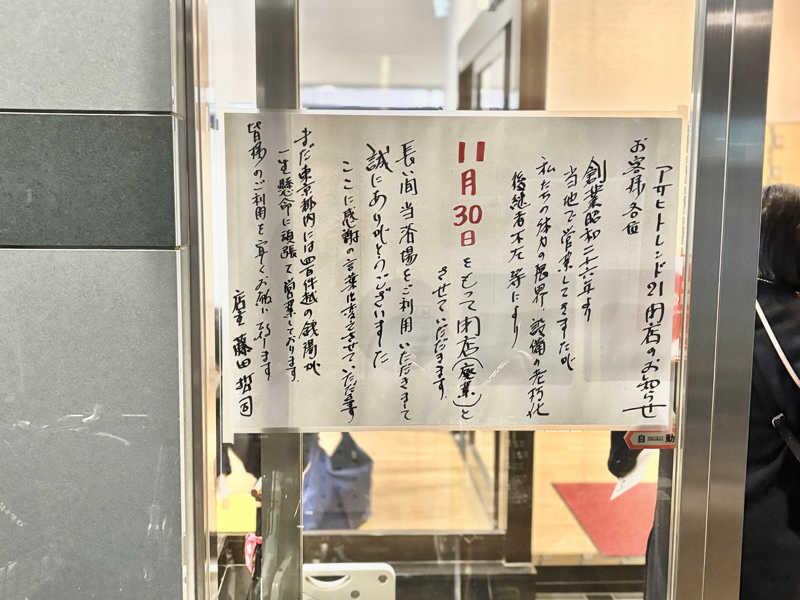 アサヒトレンド21閉店のお知らせ
お客様各位
創業昭和二十六年より
当地で営業してきましたが
私たちの体力の限界、設備の老朽化
後継者不在等により
11月30日をもって閉店(廃業)と
させていただきます。
長い間当浴場をご利用いただきまして
誠にありがとうございました
ここに感謝の言葉に変えさせていただきます
まだ東京都内には四百件越の銭湯が
一生懸命に頑張って営業しております。
皆様のご利用を宜しくお願い致します
店主 藤田哲司
自動